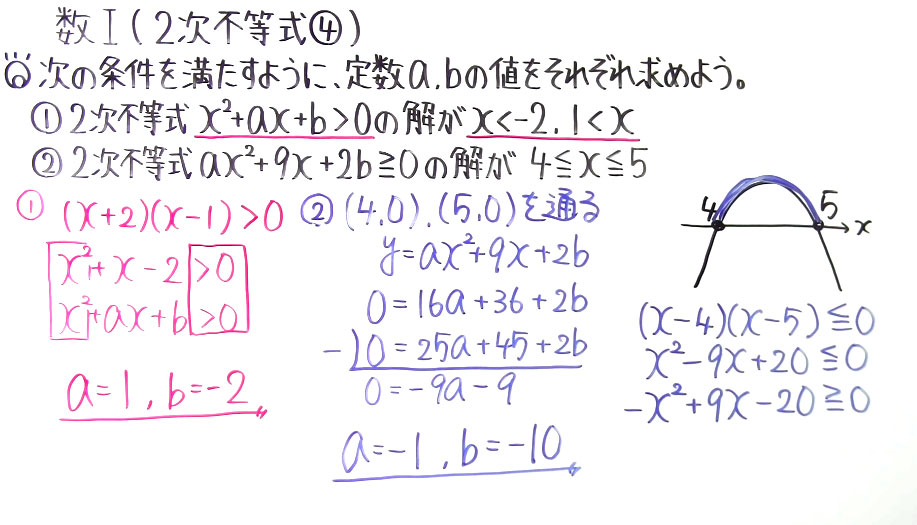 数Ⅰ(2次不等式④)
◎次の条件を満たすように、定数a,bの値をそれぞれ求めよう。
①2次不等式x²+ax+b>0の解がx<-2,1<x
②2次不等式ax²+9x+2b≧0の解が4≦x≦5
①
(x+2)(x-1)>0
x²+x-2>0
x²+ax+b>0
a=1,b=-2
②(4,0),(5,0)を通る
y=ax²+9x+2b
0=16a+36+2b
-)0=25a+45+2b
0=-9a-9
a=-1,b=-10
4 5 x
(x-4)(x-5)≦0
x²-9x+20≦0
-x²+9x-20≧0